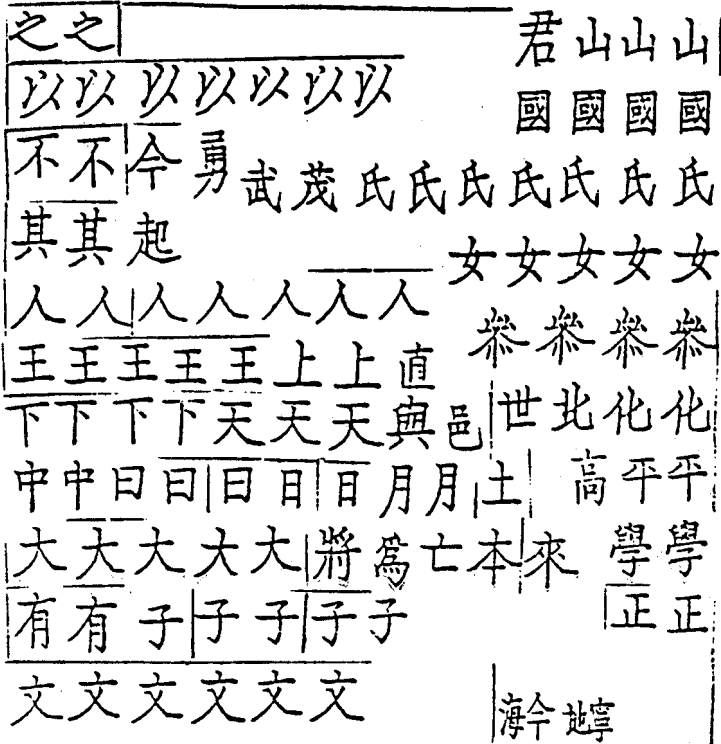 之之 君山山山
以以以以以以以 國國國國
不不今勇武茂氏氏氏氏氏氏氏
其其起 女女女女女
人人人人人人人 參參參參
王王王王王上上直 世北化化
下下下下天天天與邑
中中曰曰曰日日月月土 高平平
大大大大大將爲亡本來 學學
有有子子子子子 正正
文文文文文文文 海今地寧